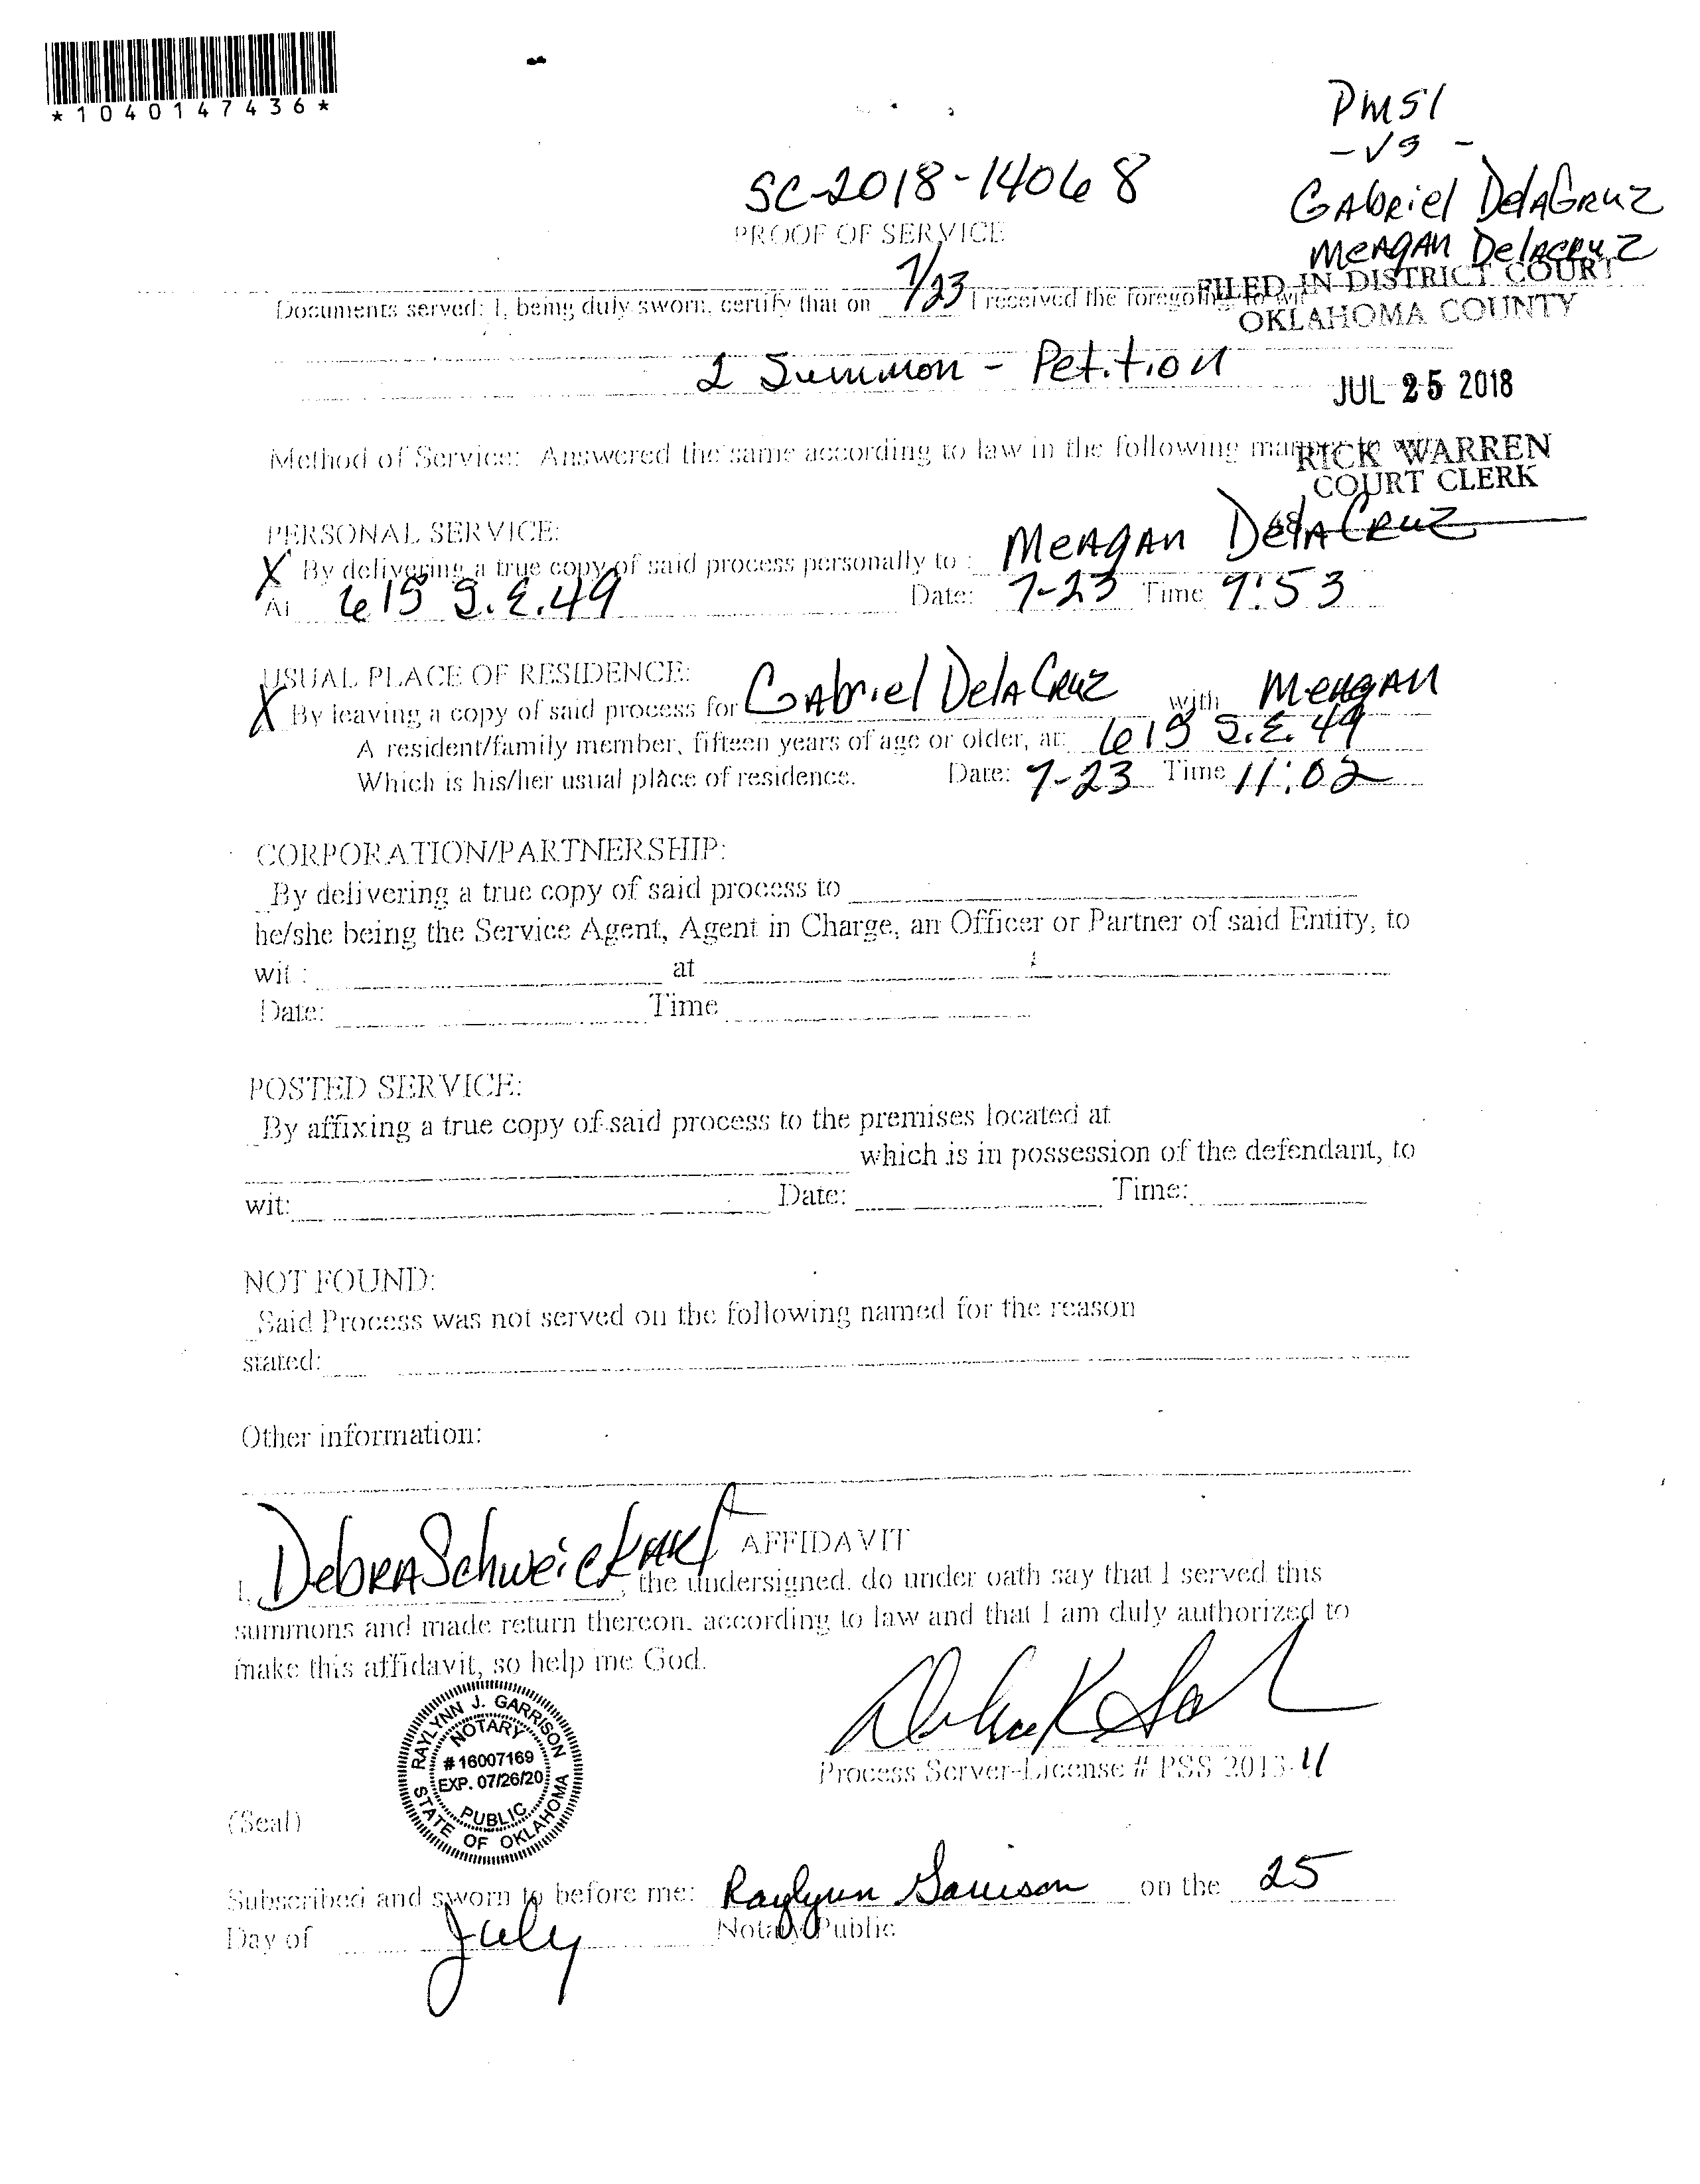 *1040147436*
PMSI
-VS-
SC-2018-14068
Gabriel DelaCruz
PROOF OF SERVICE
Meagan Delacruz
FILED IN DISTRICT COURT
Documents served: I, being duly sworn, certify that on 7/23 I received the foregoing to wit
OKLAHOMA COUNTY
2 Summon - Petition
JUL 25 2018
Method of Service: Answered the same according to law in the following manner to wit:
RICK WARREN
COURT CLERK
PERSONAL SERVICE:
X By delivering a true copy of said process personally to : Meagan DelaCruz
At 615 S.E. 49 Date: 7-23 Time 9:53
USUAL PLACE OF RESIDENCE:
X By leaving a copy of said process for Gabriel DelaCruz with Meagan
A resident/family member, fifteen years of age or older, at: 615 S.E. 49
Which is his/her usual place of residence. Date: 7-23 Time 11:02
CORPORATION/PARTNERSHIP:
_By delivering a true copy of said process to
he/she being the Service Agent, Agent in Charge, an Officer or Partner of said Entity, to
wit : at
Date: Time
POSTED SERVICE:
_By affixing a true copy of said process to the premises located at
which is in possession of the defendant, to
wit: Date: Time:
NOT FOUND:
_Said Process was not served on the following named for the reason
stated:
Other information:
AFFIDAVIT
I, Debra Schweickart, the undersigned, do under oath say that I served this
summons and made return thereon, according to law and that I am duly authorized to
make this affidavit, so help me God.
RAYLYNN J. GARRISON
NOTARY
#16007169
EXP. 07/26/20
PUBLIC
STATE OF OKLAHOMA
Process Server-License # PSS 2013-4
(Seal)
Subscribed and sworn to before me: Raylynn Garrison on the 25
Day of July Notary Public